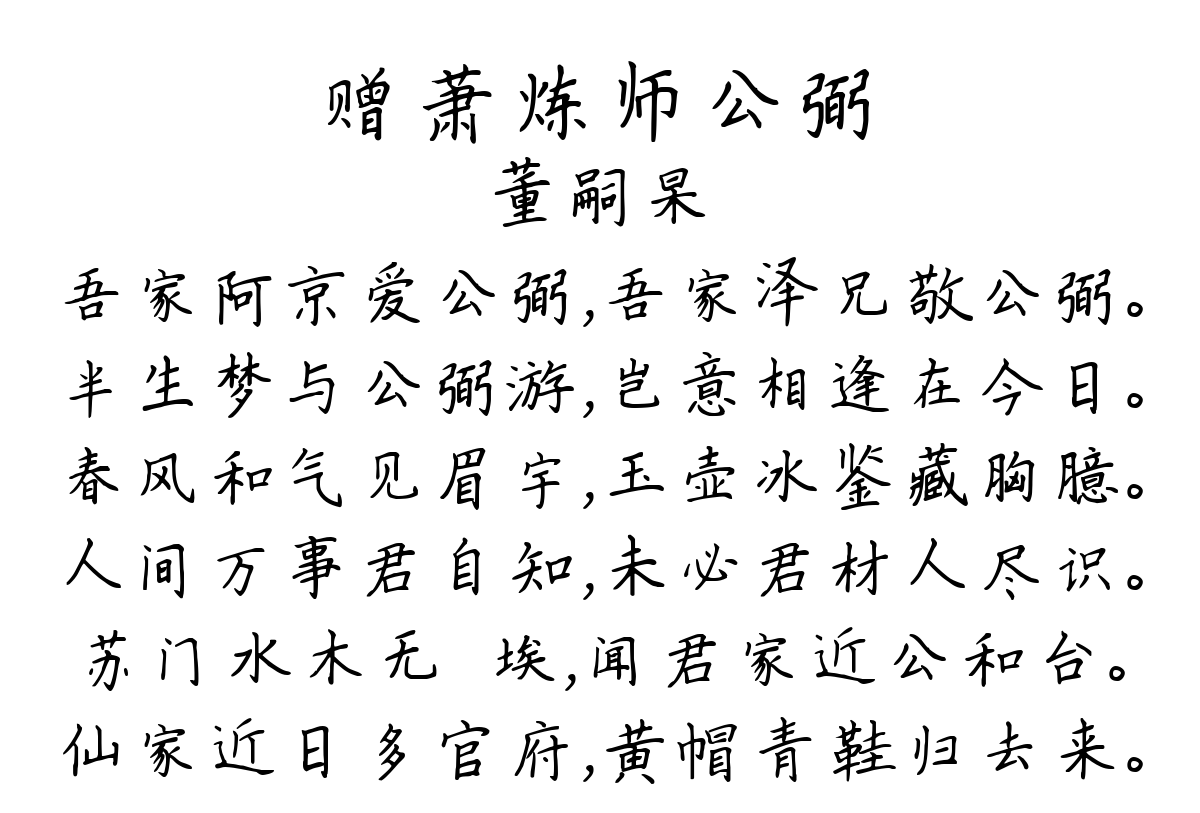 赠萧炼师公弼
董嗣杲
吾家阿京爱公弼,吾家泽兄敬公弼。
半生梦与公弼游,岂意相逢在今日。
春风和气见眉宇,玉壶冰鉴藏胸臆。
人间万事君自知,未必君材人尽识。
苏门水木无 埃,闻君家近公和台。
仙家近日多官府,黄帽青鞋归去来。